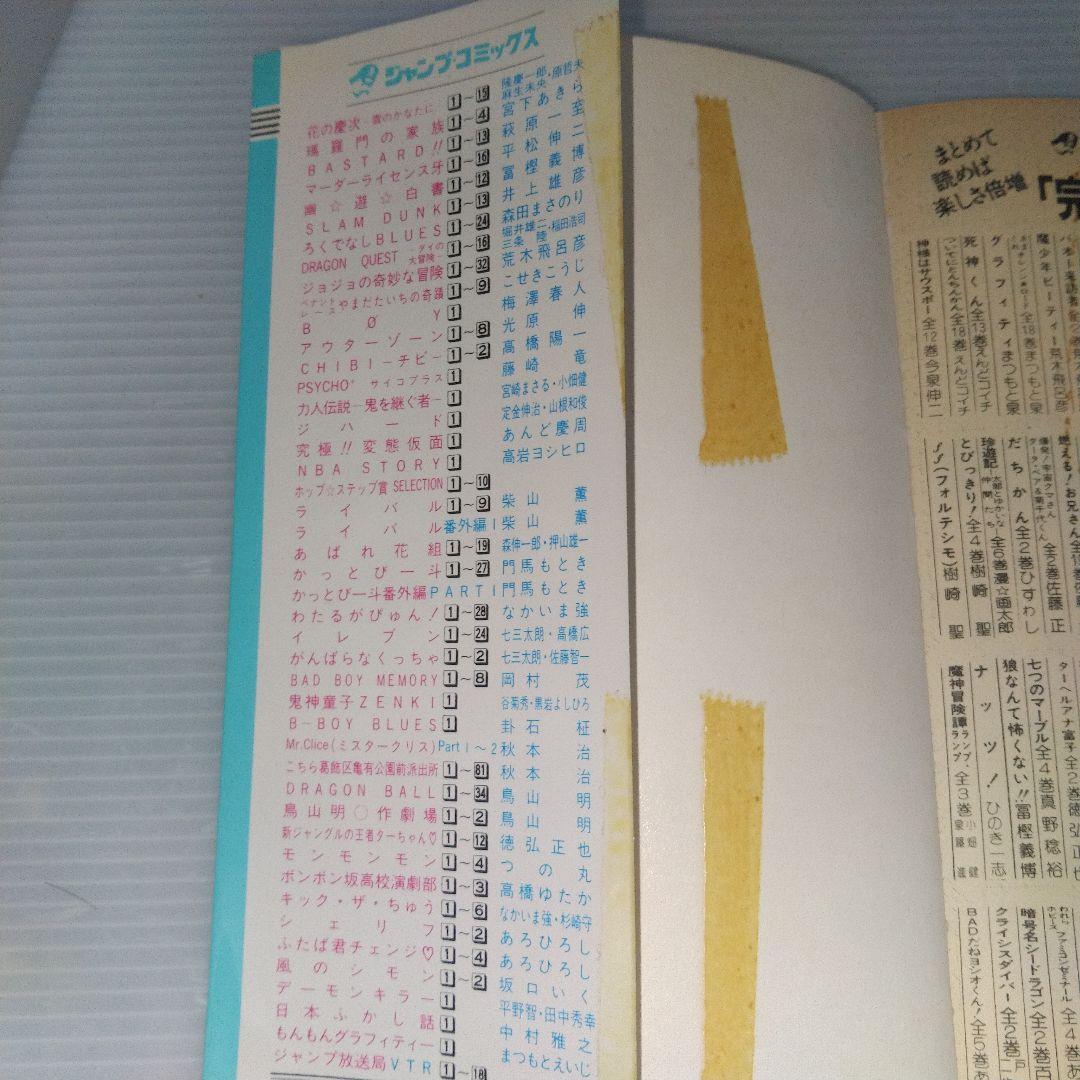 ジャンプ・コミックス
花の慶次-雲のかなたに- 1~15 隆慶一郎・麻生未央・原哲夫
瑪羅門の家族 1~4 宮下あきら
BASTARD!! 1~13 萩原一至
マーダーライセンス牙 1~16 平松伸二
幽☆遊☆白書 1~12 冨樫義博
SLAM DUNK 1~13 井上雄彦
ろくでなしBLUES 1~24 森田まさのり
DRAGON QUEST-ダイの大冒険- 1~16 堀井雄二・稲田浩司 三条陸
ジョジョの奇妙な冒険 1~32 荒木飛呂彦
ペナントレースやまだたいちの奇蹟 1~9 こせきこうじ
BØY 1 梅澤春人
アウターゾーン 1~8 光原伸
CHIBI-チビ- 1~2 高橋陽一
PSYCHO+ サイコプラス 1 藤崎竜
力人伝説-鬼を継ぐ者- 1 宮崎まさる・小畑健
ジハード 1 定金伸治・山根和俊
究極!!変態仮面 1 あんど慶周
NBA STORY 1 高岩ヨシヒロ
ホップ☆ステップ賞 SELECTION 1~10
ライバル 1~9 柴山薫
ライバル番外編 1 柴山薫
あばれ花組 1~19 森伸一郎・押山雄一
かっとび一斗 1~27 門馬もとき
かっとび一斗番外編PART1 門馬もとき
わたるがぴゅん! 1~28 なかいま強
イレブン 1~24 七三太朗・高橋広
がんばらなくっちゃ 1~2 七三太朗・佐藤智一
BAD BOY MEMORY 1~8 岡村茂
鬼神童子ZENKI 1 谷菊秀・黒岩よしひろ
B-BOY BLUES 1 卦石柾
Mr.Clice(ミスタークリス)Part1~2 秋本治
こちら葛飾区亀有公園前派出所 1~81 秋本治
DRAGON BALL 1~34 鳥山明
鳥山明○作劇場 1~2 鳥山明
新ジャングルの王者ターちゃん♡ 1~12 徳弘正也
モンモンモン 1~4 つの丸
ボンボン坂高校演劇部 1~3 高橋ゆたか
キック・ザ・ちゅう 1~6 なかいま強・杉崎守
シェリフ 1~2 あろひろし
ふたば君チェンジ♡ 1~4 あろひろし
風のシモン 1~2 坂口いく
デーモンキラー 1 平野智・田中秀幸
日本ふかし話 1 中村雅之
もんもんグラフィティー 1 まつもとえいじ
ジャンプ放送局VTR 1~18
まとめて
読めば
楽しさ倍増
「完
魔少年ビーティー 荒木飛呂彦
きまぐれオレンジ★ロード全18巻まつもと泉
グラフィティ まつもと泉
死神くん全13巻えんどコイチ
ついでにとんちんかん全18巻えんどコイチ
神様はサウスポー全12巻今泉伸二
燃える!お兄さん
全2巻佐藤正
だちかん全2巻ひすわし
珍遊記 太郎とゆかいな仲間たち 全6巻漫☆画太郎
とびっきり!全4巻樹崎聖
ff(フォルテシモ)樹崎聖
ターヘルアナ富子全2巻徳弘正也
七つのマーブル全4巻真野稔裕
狼なんて怖くない!!冨樫義博
ナッツ!ひのき一志
魔神冒険譚ランプ・ランプ全3巻泉藤進 小畑健
暗号名シードラゴン全2巻
クライシスダイバー全2巻戸
BADだねヨシオくん!全5巻あ